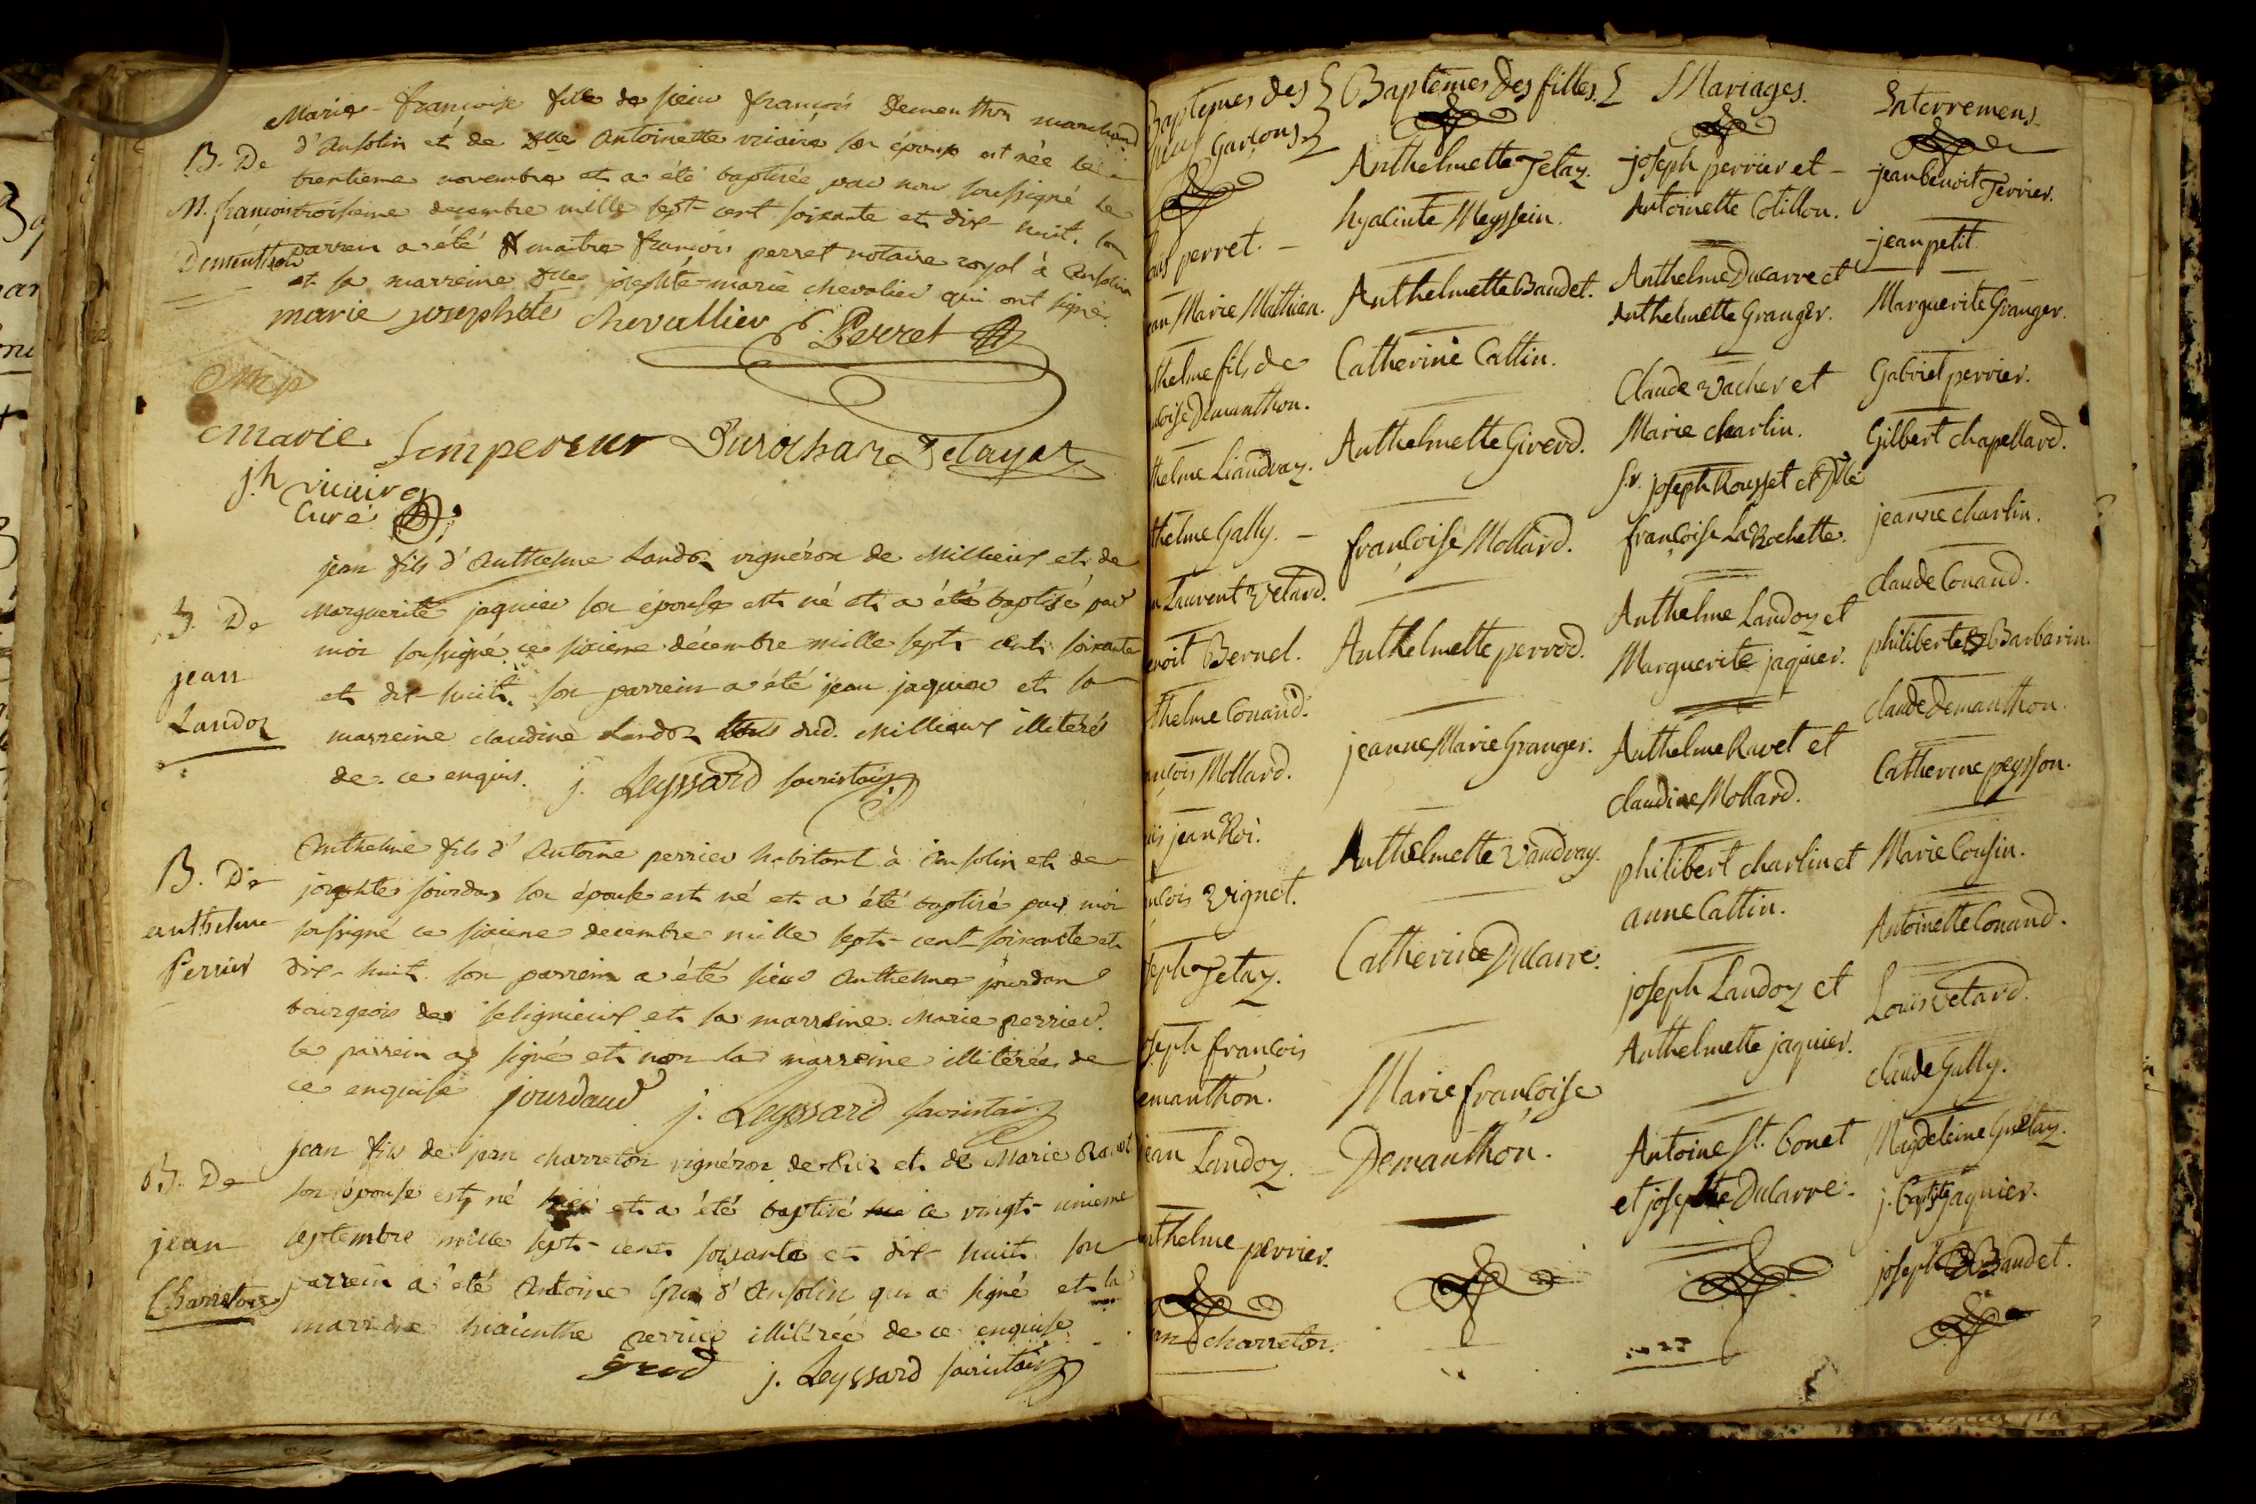 Marie-françoise fille de sieur françois Dementhon marchand
B. De
d'Ansolin et de Dlle Antoinette son épouse est née le
trentieme novembre et a été baptisée par nous soussigné le
M. françoise troisieme decembre mille sept cent soixante et dix-huit. son
Dementhon parrein a été maitre françois perret notaire royal à Ansolin
et sa marreine Dlle josephte-marie chevalier qui ont signé.
marie josephte chevallier f. Perret
marie Lempereur Durochar Delayat
j.h
Curé
jean fils d'Anthelme Landoz vignéron de Millieux et de
B. De
Marguerite jaquier son épouse est né et a été baptisé par
moi soussigné ce sixieme décembre mille sept-cent soixante
jean
et dix huit. son parrein a été jean jaquier et sa
Landoz
marreine claudine Landoz dud. Millieux illiterés
de ce enquis. j. Leyssard sacristain
Anthelme fils d'Antoine perrier habitant à Ansolin et de
B. De
josephte jourdan son épouse est né et a été baptisé par moi
anthelme
soussigné ce sixieme decembre mille sept-cent soixante et
Perrier
dix-huit. son parrein a été sieur Anthelme jourdan
bourgeois de selignieux et sa marreine Marie perrier.
le parrein a signé et non la marreine illiterée de
ce enquise jourdan j. Leyssard sacristain
jean fils de jean charreton vignéron de et de Marie Ravet
B. De
son épouse est né et a été baptisé ce vingt-unieme
jean
septembre mille sept-cent soixante et dix huit son
Charreton
parrein a été Antoine d'Ansolin qui a signé et la
marreine hiacinthe perrier illitérée de ce enquise
j. Leyssard sacristain
Baptemes des
Garçons
perret.
Marie Mathieu.
thelme fils de
Demanthon.
thelme Liaudray.
thelme Gally.
Laurent Vetard.
noit Bernel.
thelme Conand.
nçois Mollard.
jean Roi.
nçois Vignet.
seph Jetaz.
oseph françois
emanthon.
jean Landoz.
nthelme perrier.
charreton.
Baptêmes Des filles.
Anthelmette Jetaz.
hyacinte Meyssein.
Anthelmette Baudet.
Catherine Cattin.
Anthelmette Giverd.
françoise Mollard.
Anthelmette perrod.
jeanne Marie Granger.
Anthelmette Vaudray.
Catherine Ducarre.
Marie françoise
Demanthon.
Mariages.
joseph perrier et
Antoinette Cotillon.
Anthelme Ducarre et
Anthelmette Granger.
Claude Vacher et
Marie charlin.
Sr. joseph Rousset et Dlle
françoise La Rochette.
Anthelme Landoz et
Marguerite jaquier.
Anthelme Ravet et
claudine Mollard.
philibert charlin et
anne Cattin.
joseph Landoz et
Anthelmette jaquier.
Antoine St. Conet
et josephte Ducarre.
Enterremens.
jean benoit Ferrier.
jean petit.
Marguerite Granger.
Gabriel perrier.
Gilbert chapellard.
jeanne charlin.
claude Conand.
philiberte Barbarin.
claude Demanthon.
Catherine peysson.
Marie Cousin.
Antoinette Conand.
Louis Vetard.
claude Gally.
Magdeleine
j. Baptiste jaquier.
joseph Baudet.